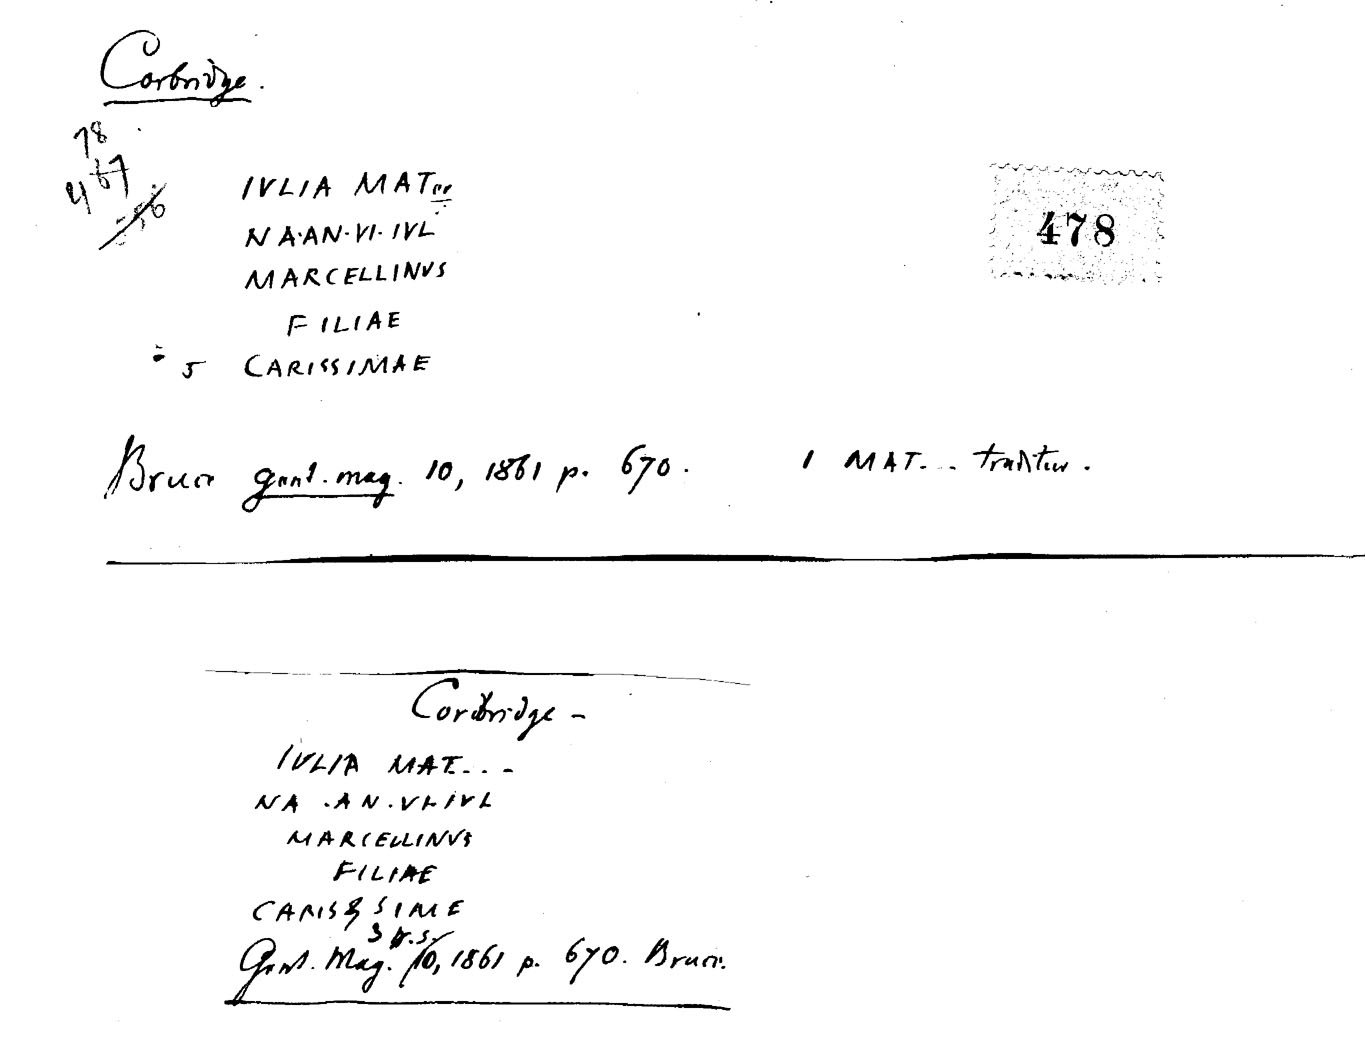 Corbridge.
78
467
478
IVLIA MAT..
NA·AN·VI·IVL
MARCELLINVS
FILIAE
5 CARISSIMAE
Bruce gent. mag. 10, 1861 p. 670. 1 MAT... traditur.
Corbridge -
IVLIA MAT....
NA .AN.VI.IVL
MARCELLINVS
FILIAE
CARISSIME
3 r.s.
Gent. Mag. 10, 1861 p. 670. Bruce.